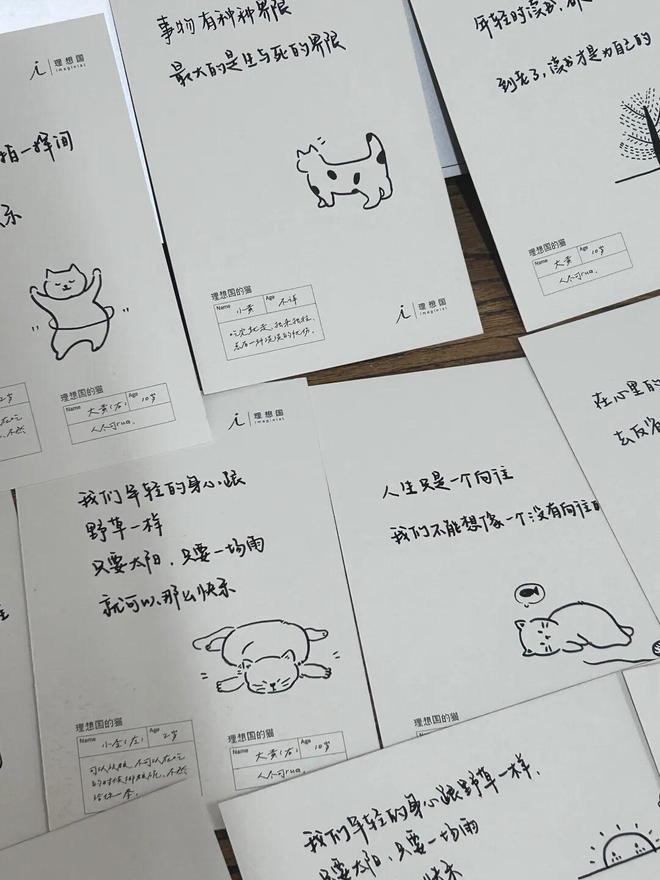 理想国
imaginist
拍一挥间
乐
2岁
理想国的猫
Name 大黄(右) Age 10岁
人人可rua.
事物有种种界限
最大的是生与死的界限
理想国的猫
Name 小黄 Age 不详
理想国
imaginist
年轻时读书,
到老了,读书才是为自己的
理想国的猫
Name 大黄 Age 10岁
人人可rua.
理想国
imaginist
我们年轻的身心跟
野草一样
只要太阳,只要一场雨
就可以那么快乐
理想国的猫
Name 小金(左) Age 2岁
理想国的猫
Name 大黄(右) Age 10岁
人人可rua.
人生只是一个向往
我们不能想像一个没有向往的
理想国的猫
在心里的
去反省
我们年轻的身心跟野草一样,
只要太阳,只要一场雨
快乐